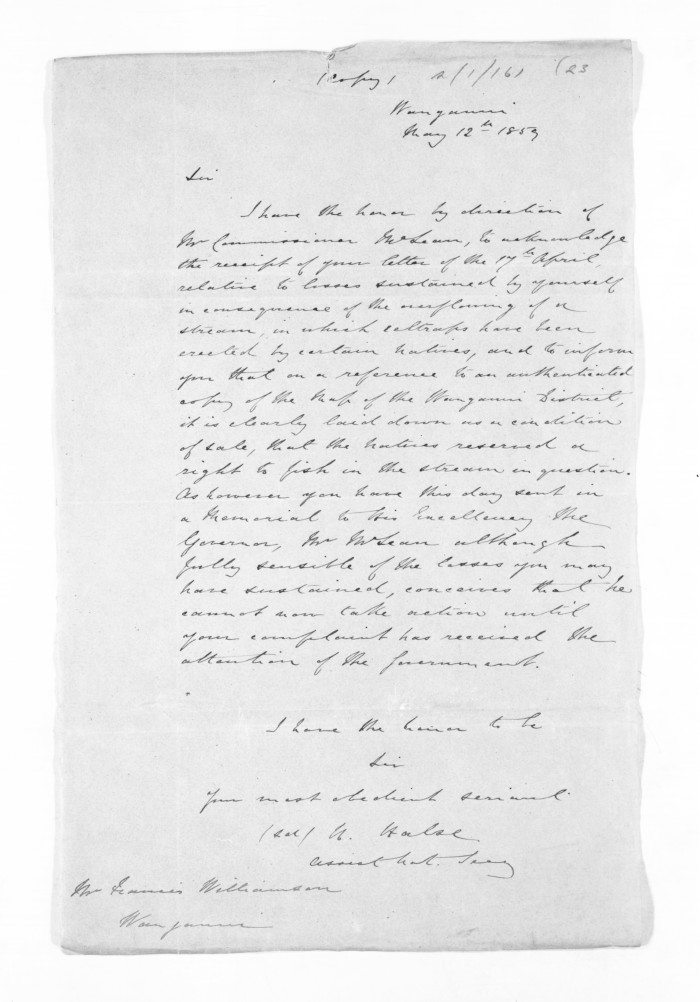 (Copy)
(23
Wanganui
May 12th 1859
Sir
I have the honor by direction of
Mr Commissioner McLean, to acknowledge
the receipt of your letter of the 17th April,
relative to losses sustained by yourself
in consequence of the overflowing of a
stream, in which eeltraps have been
erected by certain natives, and to inform
you that on a reference to an authenticated
copy of the Map of the Wanganui District,
it is clearly laid down as a condition
of sale, that the natives reserved a
right to fish in the stream in question.
As however you have this day sent in
a Memorial to His Excellency the
Governor, Mr McLean although
fully sensible of the losses you may
have sustained, conceives that he
cannot now take action until
your complaint has received the
attention of the Government.
I have the honor to be
Sir
Your most obedient servant
(sd) H. Halse
Assist Nat. Secy
Mr Francis Williamson
Wanganui